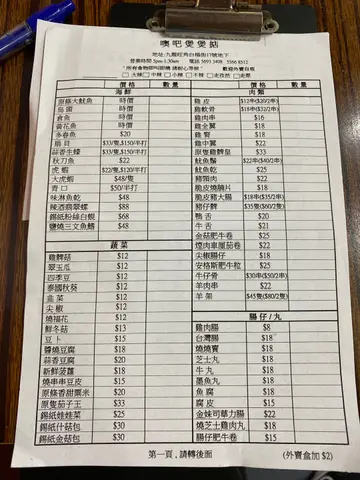 噢吧煲煲話
地址:九龍旺角白楊街17號地下
營業時間 5pm-1:30am 電話 5693 3408 5566 8512
『所有食物即叫即燒,請耐心等候』 歡迎外賣自取
□大辣 □中辣 □小辣 □不辣 □走孜然 □走葱
價格 數量 價格 數量
海鮮 肉類
原條大魷魚 時價
烏頭 時價
倉魚 時價
黃花魚 時價
多春魚 $20
扇貝 $33/隻,$150/半打
蒜香生蠔 $33/隻,$150/半打
秋刀魚 $22
虎蝦 $22/隻,$120/半打
大虎蝦 $48/隻
青口 $50/半打
味淋魚乾 $48
辣酒翡翠螺 $88
錫紙粉絲白蜆 $68
鹽燒三文魚鰭 $48
雞皮 $12串($20/2串)
雞軟骨 $18串($32/2串)
雞肉串 $16
雞全翼 $18
雞腎 $18
雞中翼 $22
原隻雞脾皇 $33
魷魚鬚 $22串($40/2串)
魷魚 $25
豬頸肉 $22
脆皮燒腩片 $18
脆皮豬大腸 $18串($35/2串)
豬仔髀 $35隻($60/2隻)
鴨舌 $20
牛舌 $21
金菇肥牛卷 $25
煙肉車厘茄卷 $22
尖椒腸仔 $18
安格斯肥牛粒 $25
牛仔骨 $30串($50/2串)
羊肉串 $22
羊架 $45隻($80/2隻)
蔬菜
雞髀菇 $12
翠玉瓜 $12
四季豆 $12
泰國秋葵 $12
韭菜 $12
尖椒 $12
燒福花 $12
鮮冬菇 $13
豆卜 $15
醬燒豆腐 $18
蒜香豆腐 $20
新鮮菠蘿 $18
燒串串豆皮 $15
原條香甜粟米 $20
原隻茄子王 $33
錫紙娃娃菜 $25
錫紙什菇包 $30
錫紙金菇包 $30
腸仔/丸
雞肉腸 $8
台灣腸 $18
燒燒賣 $18
芝士丸 $18
牛丸 $18
墨魚丸 $18
魚腐 $18
腐皮 $15
金妹司華力腸 $22
燒芝士雞肉丸 $18
腸仔肥牛卷 $15
第一頁,請轉後面 (外賣盒加 $2)